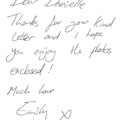 Dear Danielle
Thanks for your kind
letter and I hope
you enjoy the photos
enclosed!
Much love
Emily x